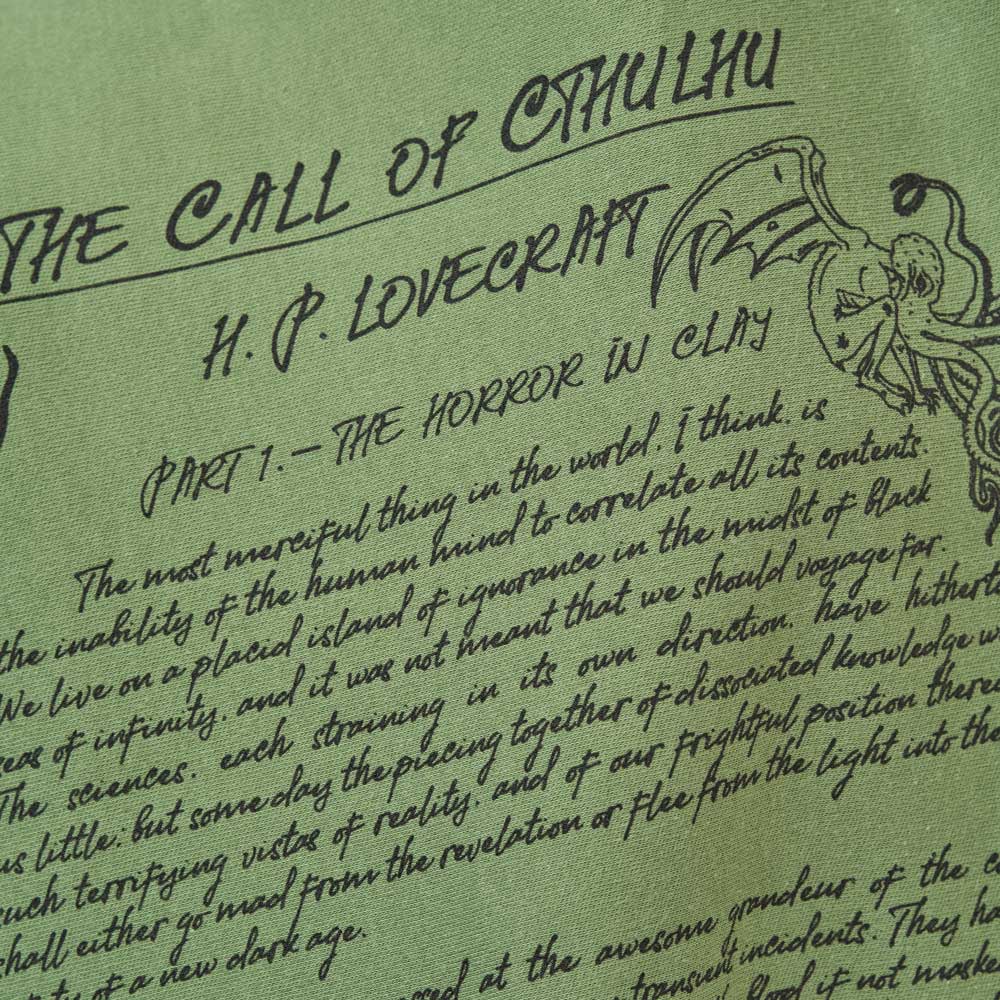 THE CALL OF CTHULHU
H. P. LOVECRAFT
PART 1. – THE HORROR IN CLAY
The most merciful thing in the world. I think. is
the inability of the human mind to correlate all its contents.
We live on a placid island of ignorance in the midst of black
seas of infinity. and it was not meant that we should voyage far.
The sciences. each straining in its own direction. have
us little; but some day the piecing together of dissociated knowledge
such terrifying vistas of reality. and of our frightful position
shall either go mad from the revelation or flee from the light into the
of a new dark age.
at the awesome grandeur of the
transient incidents. They
if not